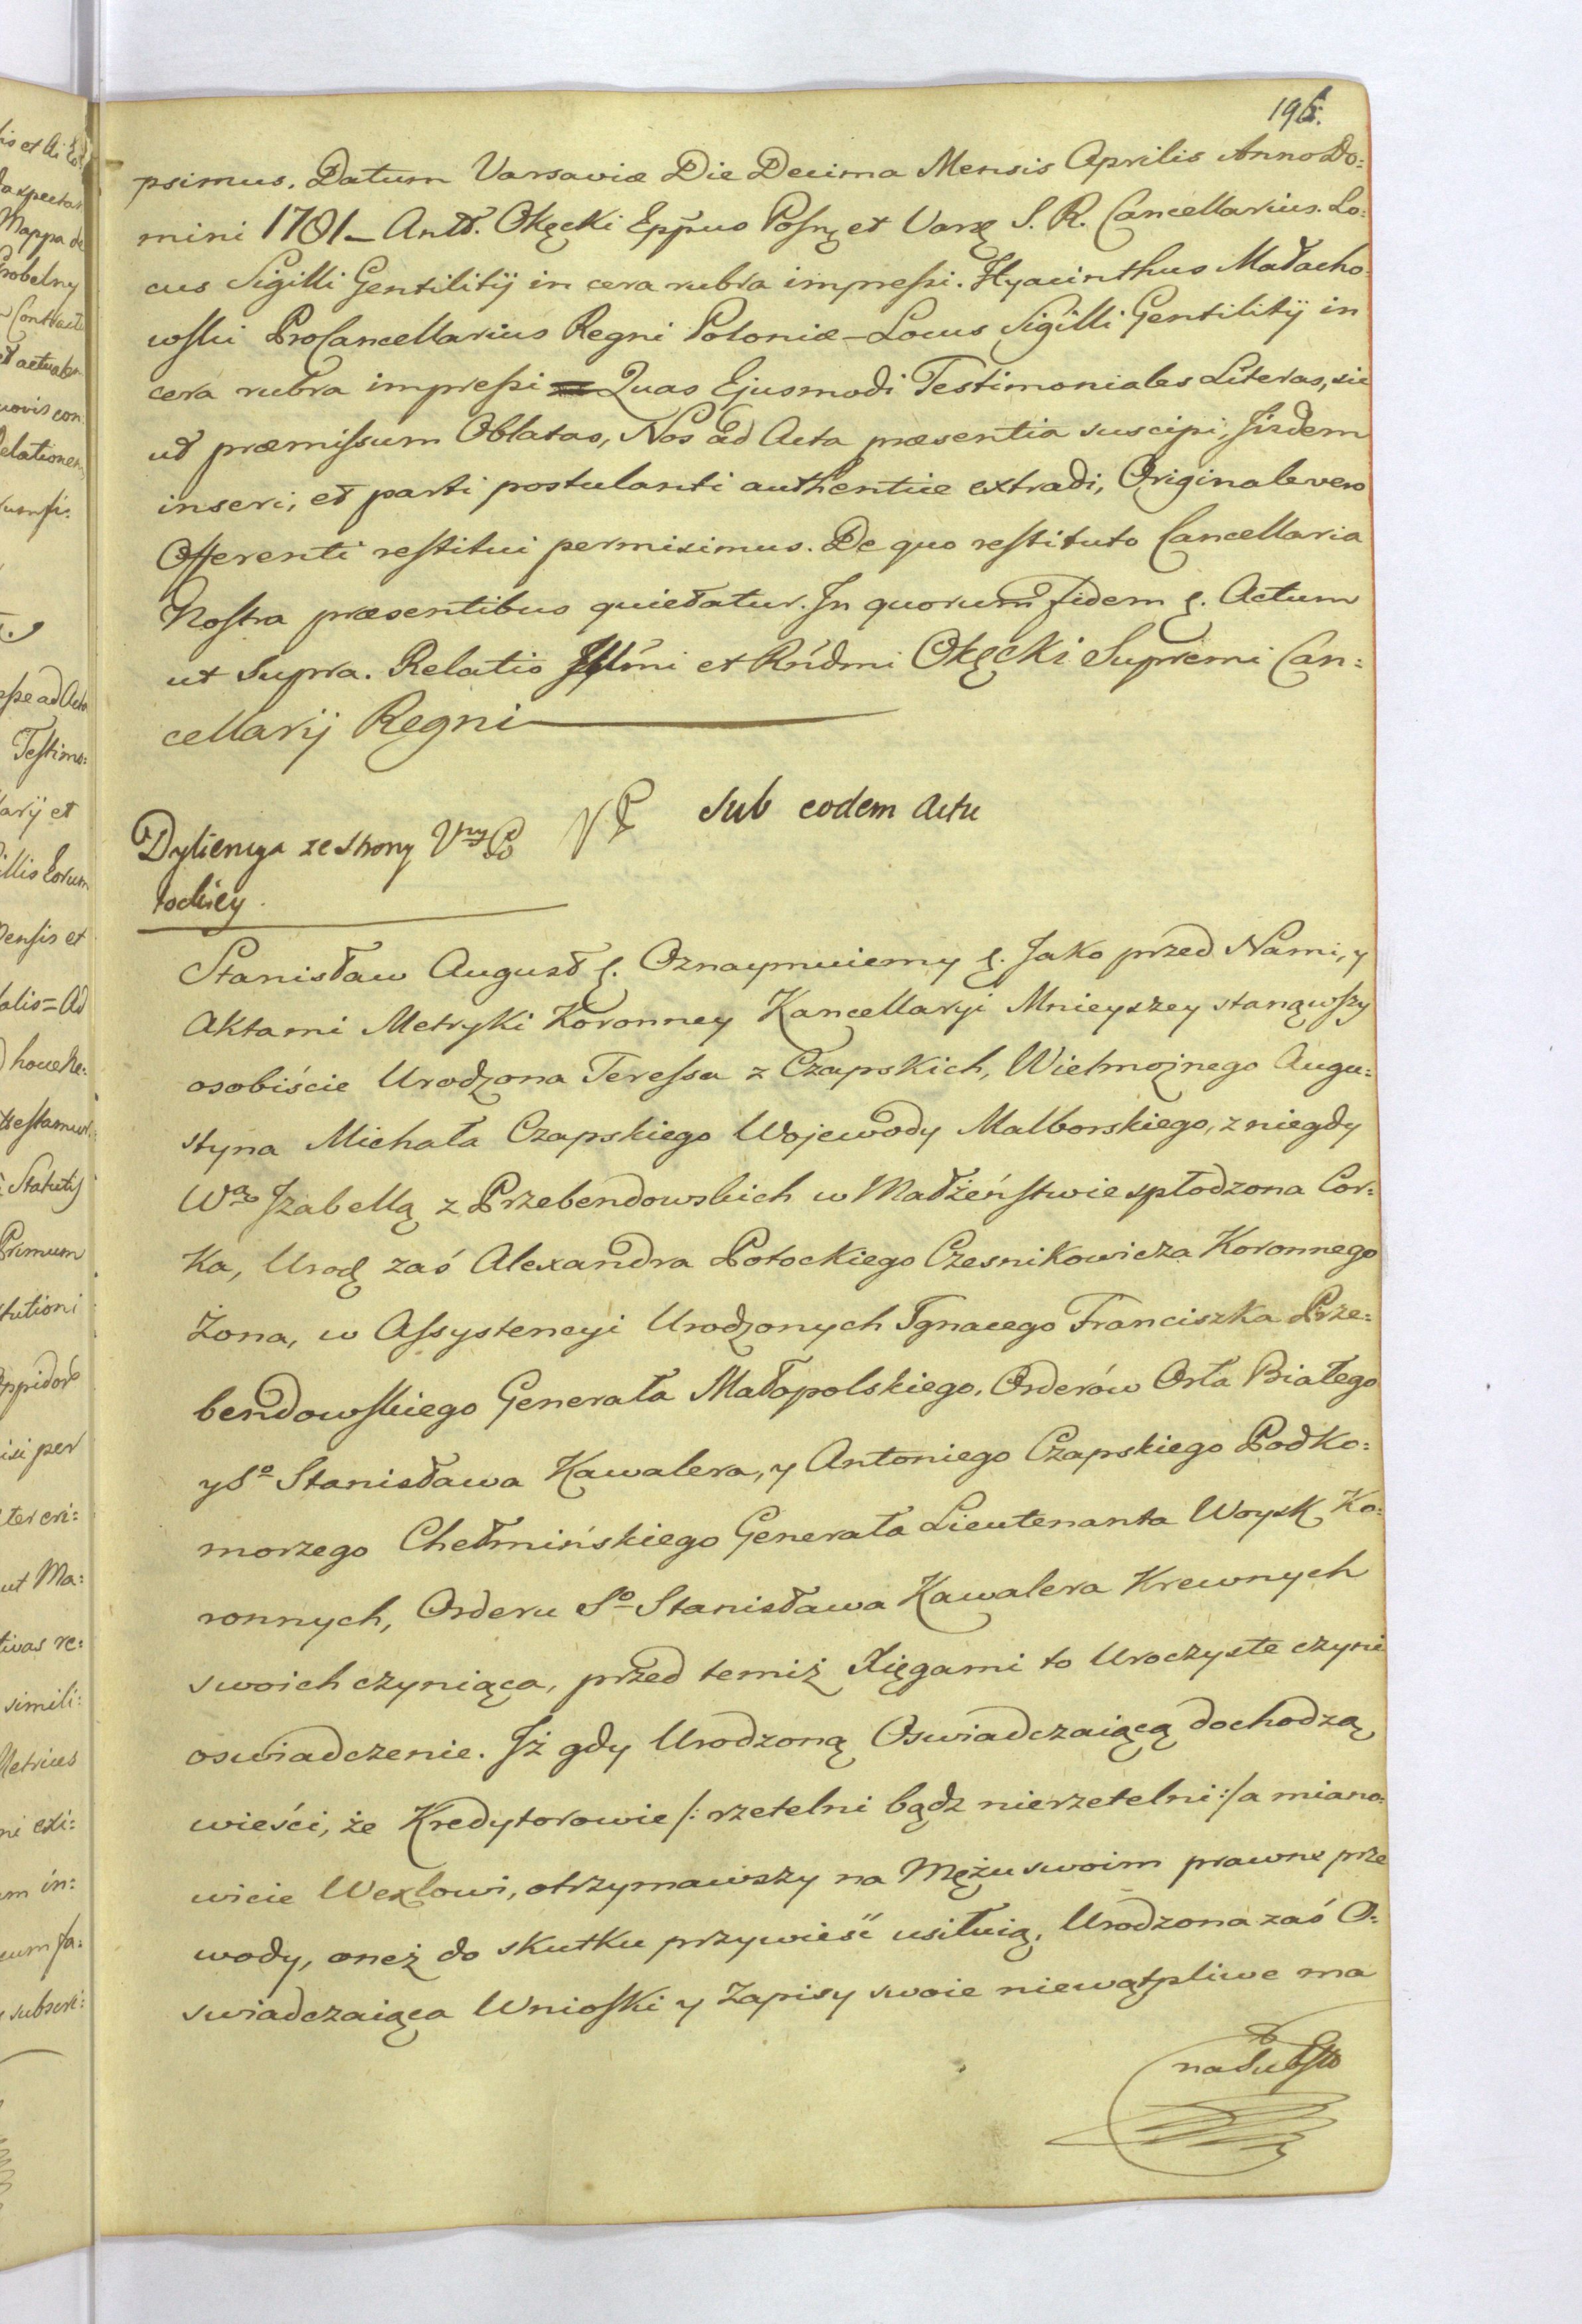 196.
psimus. Datum Varsaviæ Die Decima Mensis Aprilis Anno Do:
mini 1781 – Ant. Okęcki Eppus Posn: et Vars: S. R. Cancellarius. Lo:
cus Sigilli Gentilitij in cera rubra impressi. Hyacinthus Małacho:
wski ProCancellarius Regni Poloniæ – Locus Sigilli Gentilitij in
cera rubra impressi = Quas Ejusmodi Testimoniales Literas, sic
ut præmissum Oblatas, Nos ad Acta præsentia suscipi, Jisdem
inseri, et parti postulanti authentice extradi, Originale vero
Offerenti restitui permisimus. De quo restituto Cancellaria
Nostra præsentibus quietatur. Jn quorum fidem &. Actum
ut supra. Relatio Jllmi et Rndmi Okęcki Supremi Can:
cellarij Regni
Dyliencya ze strony Vney Po
tockiey.
sub eodem Actu
Stanisław August &. Oznaymuiemy &. Jako przed Nami, y
Aktami Metryki Koronney Kancellaryi Mnieyszey stanąwszy
osobiście Urodzona Teressa z Czapskich, Wielmożnego Augu:
styna Michała Czapskiego Wojewody Malborskiego, z niegdy
Wa Jzabellą z Przebendowskich w Małżeństwie spłodzona Cor:
ka, Urodz zaś Alexandra Potockiego Czesnikowicza Koronnego
Żona, w Assystencyi Urodzonych Jgnacego Franciszka Prze:
bendowskiego Generała Małopolskiego, Orderów Orła Białego
y So Stanisława Kawalera, y Antoniego Czapskiego Podko:
morzego Chełmińskiego Generała Lieutenanta Woysk Ko:
ronnych, Orderu So Stanisława Kawalera Krewnych
swoich czyniąca, przed temiż Xięgami to Uroczyste czyni
oswiadczenie. Jż gdy Urodzoną Oswiadczaiącą dochodzą
wieści, że Kredytorowie /: rzetelni bądz nierzetelni :/ a miano:
wicie Wexlowi, otrzymawszy na Mężu swoim prawne prze
wody, oneż do skutku przywieść usiłuią, Urodzona zaś O:
swiadczaiąca Wnioski y Zapisy swoie niewątpliwe ma
na